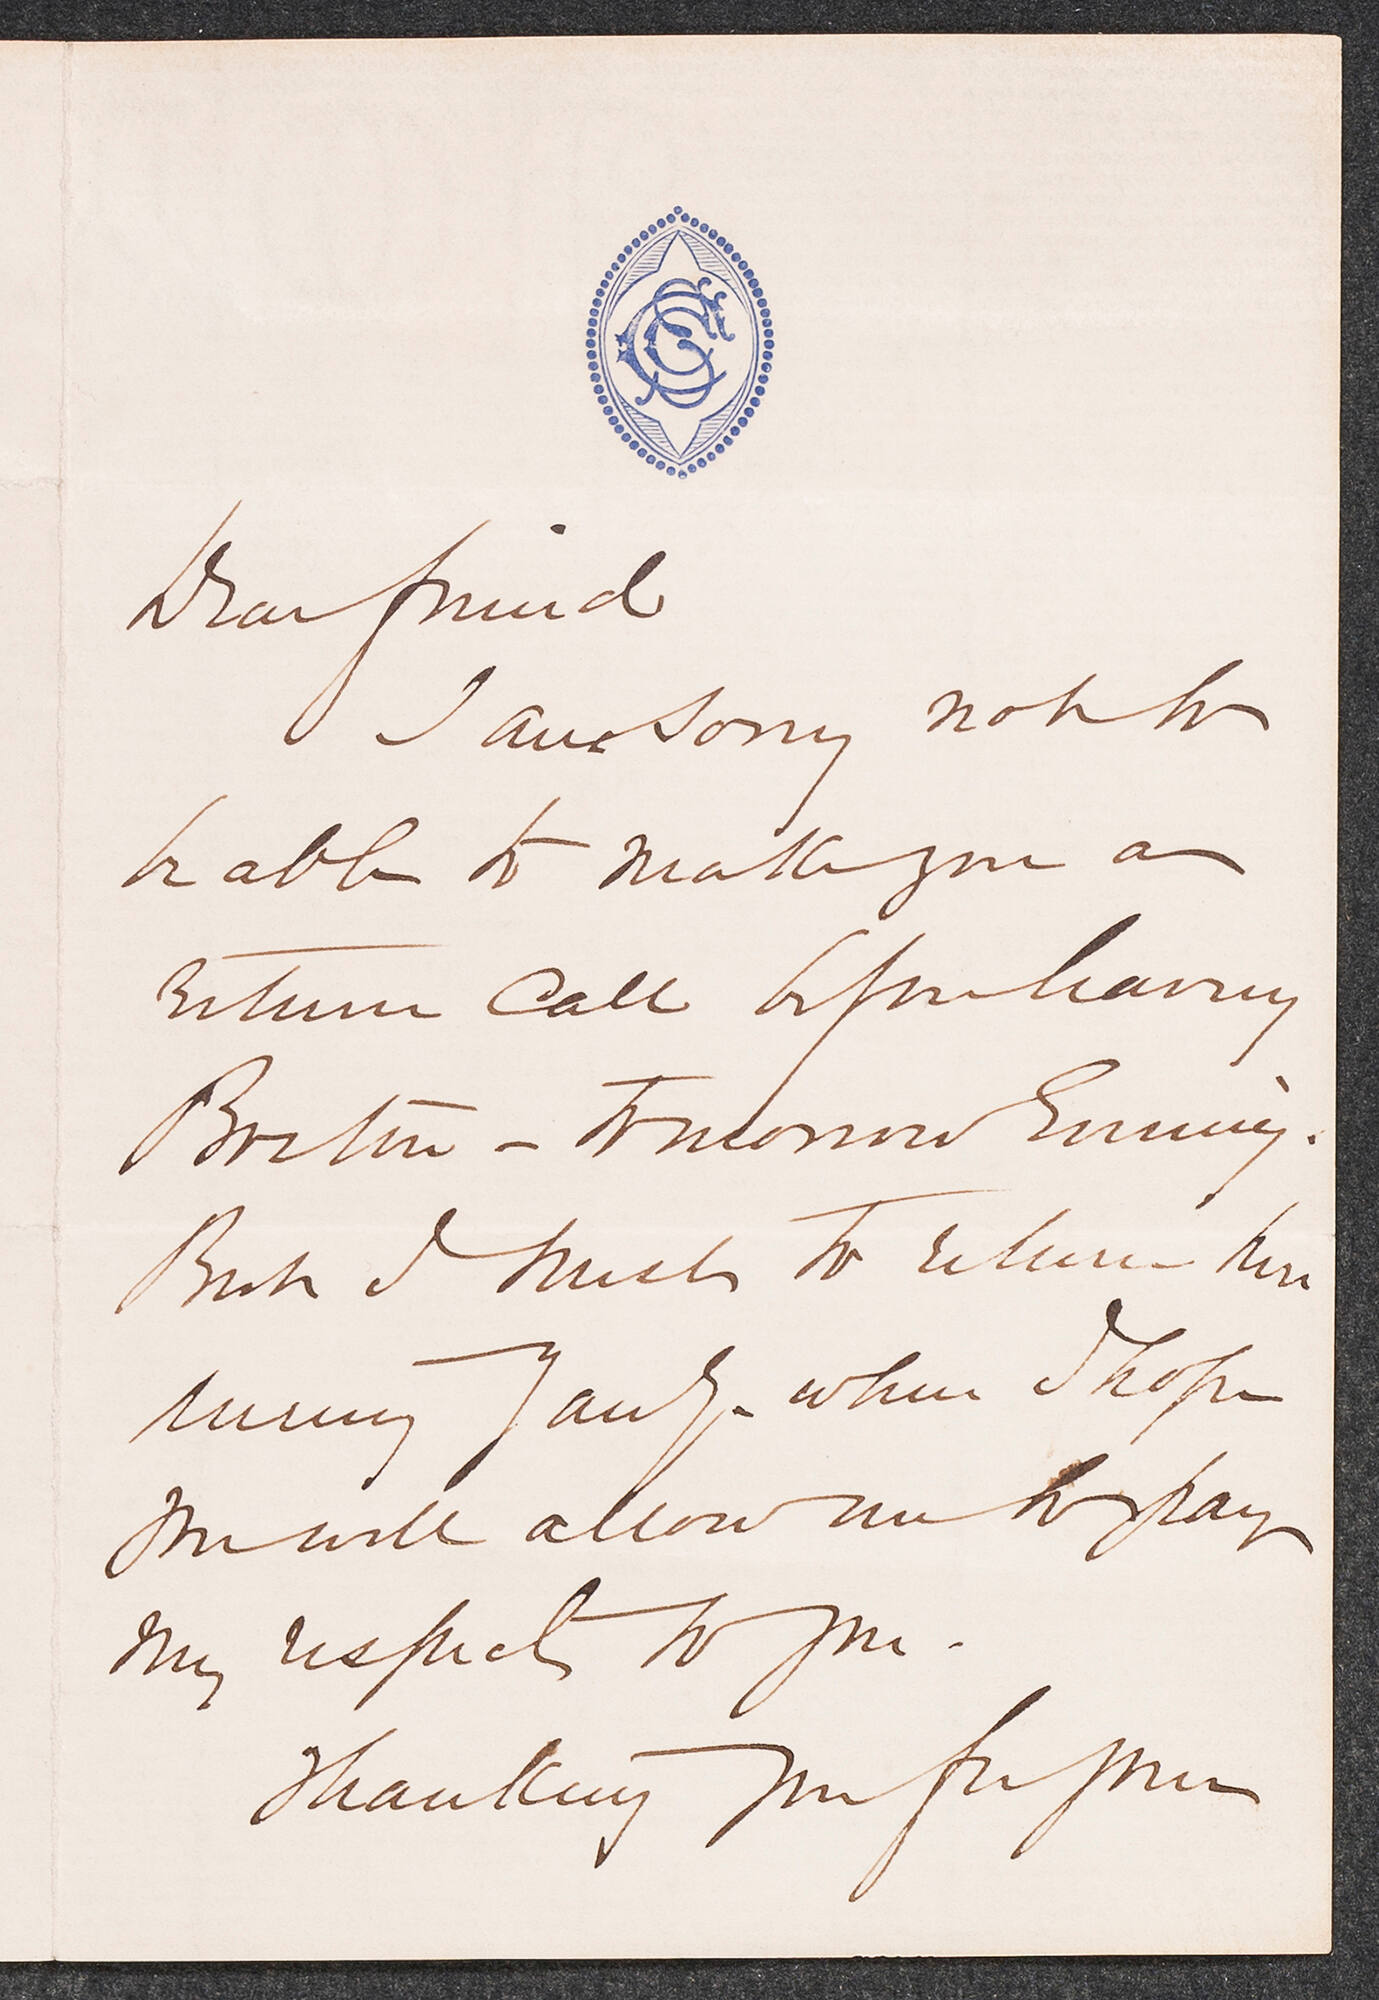 Dear friend
I am sorry not to
be able to make you a
return call before leaving
Boston – tomorrow Evening.
But I trust to return here
when I hope
you will allow me to pay
my respects to you.
Thanking you for your